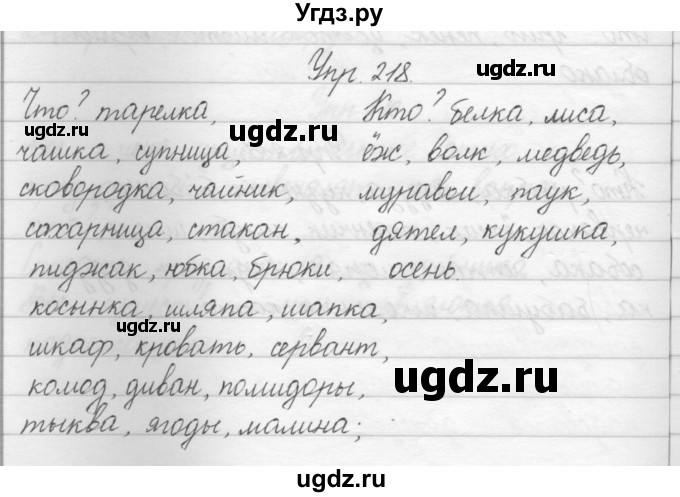 Угдз.ру
Упр. 218.
ugdz.ru
Что? тарелка,
чашка, супница,
сковородка, чайник,
сахарница, стакан,
пиджак, юбка, брюки,
косынка, шляпа, шапка,
шкаф, кровать, сервант,
комод, диван, помидоры,
тыква, ягоды, малина;
Кто? белка, лиса,
ёж, волк, медведь,
муравьи, паук,
дятел, кукушка,
осень.
ugdz.ru
ugdz.ru
ugdz.ru
ugdz.ru
ugdz.ru
ugdz.ru
ugdz.ru